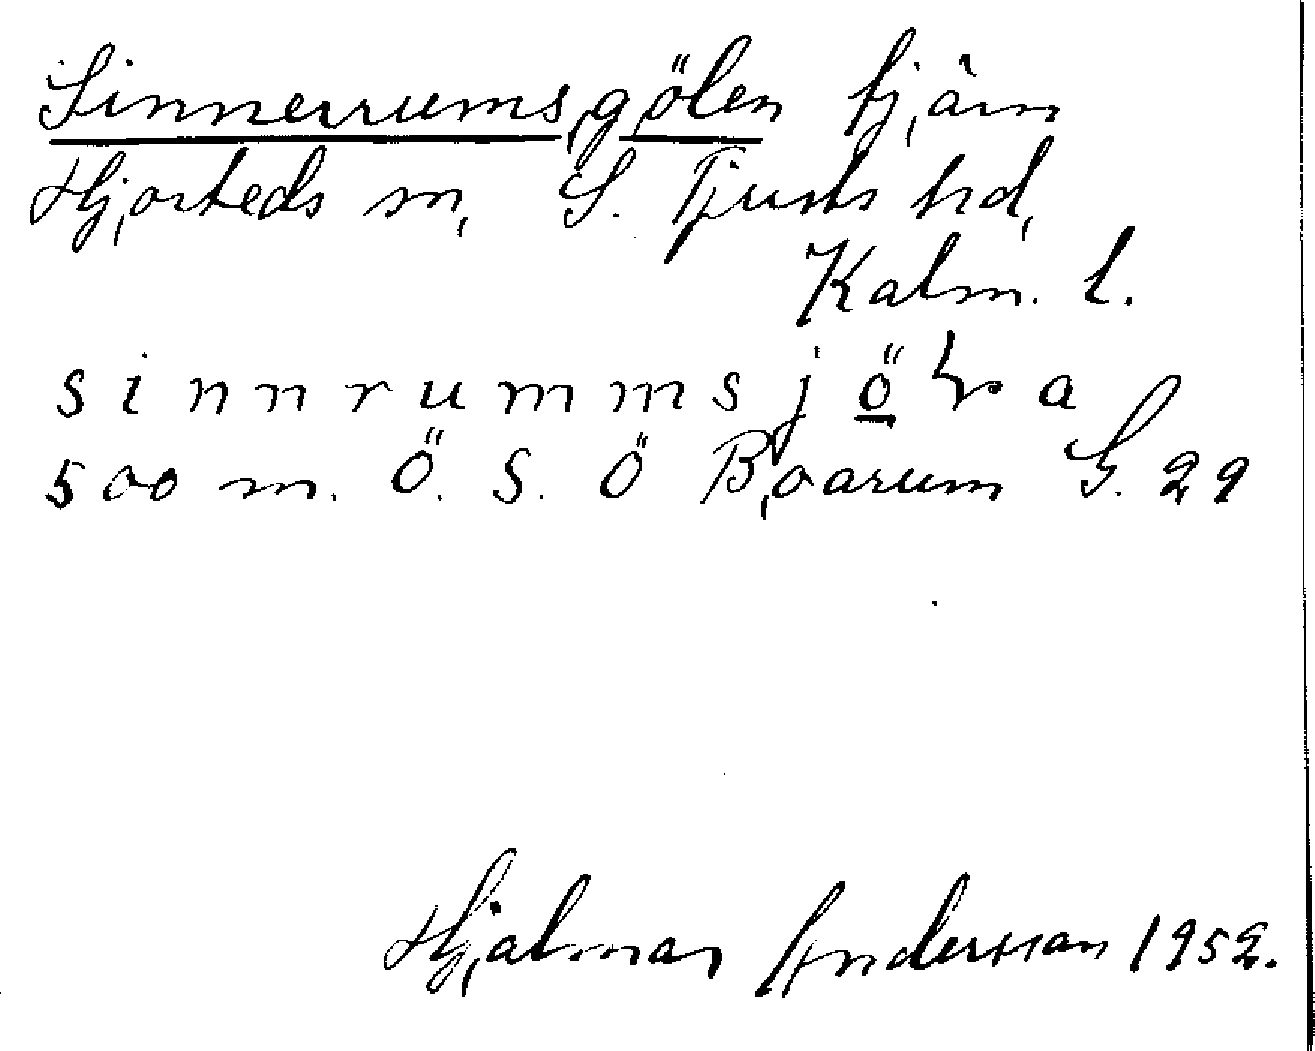 Sinnerumsgölen tjärn
Hjorteds sn, S. Tjusts hd,
Kalm. l.
sinnrummsjöɽa
500 m. Ö. S. Ö Boarum G. 29
Hjalmar Andersson 1952.